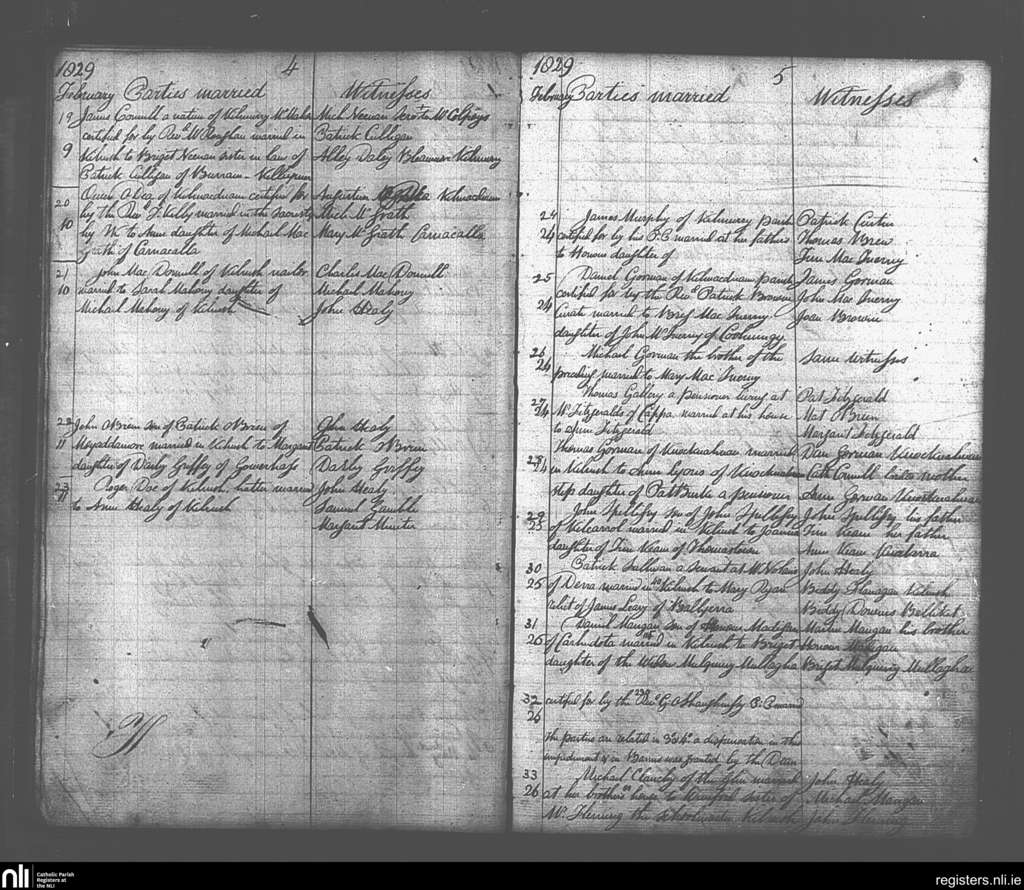 1829 4
February Parties married Witnesses
19 James Connell a native of Kilmurry Mc Mahon Mich Neenan Servt to Mr Colpoys
certified for by Revd Mr married in Patrick Culligan
9 Kilrush to Briget Neenan sister in law of Abbey Daley Kilmurry
Patrick Culligan of Burrane
20 Owen O Dea of Kilmacduan certified for Augustin O Dea Kilmacduan
by the Revd T. Kelly married in the Sacristy Mich Mc Grath
10 by VK to Anne daughter of Michael Mac Mary Mc Grath Carnacalla
Grath of Carnacalla
21 John Mac Donnell of Kilrush nailor Charles Mac Donnell
10 married to Sarah Mahony daughter of Michael Mahony
Michael Mahony of Kilrush John Healy
22 John OBrien son of Patrick OBrien of John Healy
11 Moyaddamore married in Kilrush to Margaret Patrick OBrien
daughter of Darby Griffey of Gowerhass Darby Griffey
23 Roger Doe of Kilrush hatter married John Healy
11 to Anne Healy of Kilrush Samuel Gamble
Margaret Miniter
1829 5
February Parties married Witnesses
24 James Murphy of Kilmurry parish Patrick Curtin
24 certified for by his P.P. married at her fathers Thomas Breen
to Honour daughter of Tim Mac Inerny
25 Daniel Gorman of Kilmacduan parish James Gorman
certified for by the Revd Patrick Browne John Mac Inerny
24 Curate married to Mac Inerny Joan Browne
daughter of John Mc Inerny of
26 Michael Gorman the brother of the same witnesses
24 preceding married to Mary Mac Inerny
Thomas Gallery a pensioner living at Pat Fitzgerald
27 Mr Fitzgeralds of Cappa married at his house Mat Breen
24 to Anne Fitzgerald Margaret Fitzgerald
Thomas Gorman of Knockerahran married Dan Gorman
28 in Kilrush to Anne Lyons of Cath Connell brides mother
24 step daughter of Patt Burke a pensioner Anne Gorman
29 John Spellissy son of John Spellissy John Spellissy, his father
25 of Kilcarrol married in Kilrush to Joanna Tim Keane her father
daughter of Tim Keane of Thomastown Anne Keane
30 Patrick Sullivan a servant at Mr John Healy
25 of Derra married in Kilrush to Mary Ryan Biddy Flanagan Kilrush
relict of James Leary of Ballyerra Biddy Downes
31 Daniel Mangan son of Honour Madigan Martin Mangan his brother
26 of Carhudota married in Kilrush to Briget Honour Madigan
daughter of the Widow Mulqueeny Mullagha Briget Mulqueeny Mullagha
32 certified for by the Revd G. O Shaughnessy P.P. married
26
the parties are related in 3d & 4th a dispensation in this
impediment & in Banns was granted by the Dean
33 Michael Clanchy of the Glin married John Healy
26 at her brothers house to sister of Michael Mangan
Mr Fleming the schoolmaster Kilrush John Fleming
nli Catholic Parish
Registers at
the NLI
registers.nli.ie